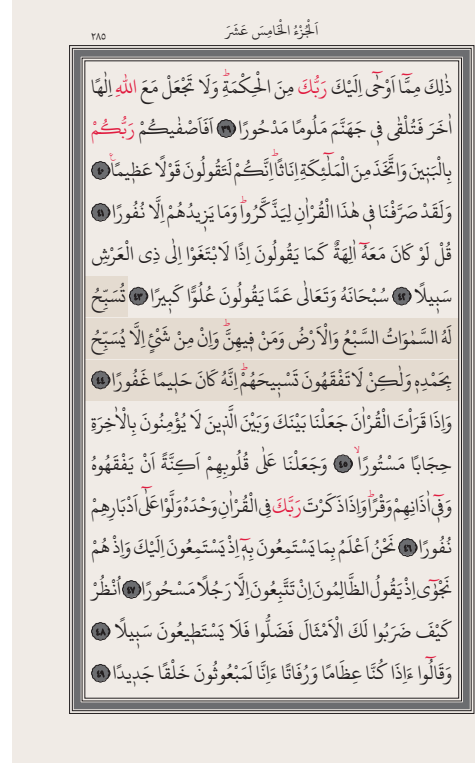 اَلْجُزْءُ الْخَامِسَ عَشَرَ
٢٨٥
ذٰلِكَ مِمَّٓا اَوْحٰٓى اِلَيْكَ رَبُّكَ مِنَ الْحِكْمَةِۜ وَلَا تَجْعَلْ مَعَ اللّٰهِ اِلٰهًا
اٰخَرَ فَتُلْقٰى فٖى جَهَنَّمَ مَلُومًا مَدْحُورًا ٣٩ اَفَاَصْفٰيكُمْ رَبُّكُمْ
بِالْبَنٖينَ وَاتَّخَذَ مِنَ الْمَلٰٓئِكَةِ اِنَاثًاۜ اِنَّكُمْ لَتَقُولُونَ قَوْلًا عَظٖيمًاۚ ٤٠
وَلَقَدْ صَرَّفْنَا فٖى هٰذَا الْقُرْاٰنِ لِيَذَّكَّرُواۜ وَمَا يَزٖيدُهُمْ اِلَّا نُفُورًا ٤١
قُلْ لَوْ كَانَ مَعَهُٓ اٰلِهَةٌ كَمَا يَقُولُونَ اِذًا لَابْتَغَوْا اِلٰى ذِى الْعَرْشِ
سَبٖيلًا ٤٢ سُبْحَانَهُ وَتَعَالٰى عَمَّا يَقُولُونَ عُلُوًّا كَبٖيرًا ٤٣ تُسَبِّحُ
لَهُ السَّمٰوَاتُ السَّبْعُ وَالْاَرْضُ وَمَنْ فٖيهِنَّۜ وَاِنْ مِنْ شَىْءٍ اِلَّا يُسَبِّحُ
بِحَمْدِهٖ وَلٰكِنْ لَا تَفْقَهُونَ تَسْبٖيحَهُمْۜ اِنَّهُ كَانَ حَلٖيمًا غَفُورًا ٤٤
وَاِذَا قَرَأْتَ الْقُرْاٰنَ جَعَلْنَا بَيْنَكَ وَبَيْنَ الَّذٖينَ لَا يُؤْمِنُونَ بِالْاٰخِرَةِ
حِجَابًا مَسْتُورًاۙ ٤٥ وَجَعَلْنَا عَلٰى قُلُوبِهِمْ اَكِنَّةً اَنْ يَفْقَهُوهُ
وَفٖٓى اٰذَانِهِمْ وَقْرًاۜ وَاِذَا ذَكَرْتَ رَبَّكَ فِى الْقُرْاٰنِ وَحْدَهُ وَلَّوْا عَلٰٓى اَدْبَارِهِمْ
نُفُورًا ٤٦ نَحْنُ اَعْلَمُ بِمَا يَسْتَمِعُونَ بِهٖٓ اِذْ يَسْتَمِعُونَ اِلَيْكَ وَاِذْ هُمْ
نَجْوٰٓى اِذْ يَقُولُ الظَّالِمُونَ اِنْ تَتَّبِعُونَ اِلَّا رَجُلًا مَسْحُورًا ٤٧ اُنْظُرْ
كَيْفَ ضَرَبُوا لَكَ الْاَمْثَالَ فَضَلُّوا فَلَا يَسْتَطٖيعُونَ سَبٖيلًا ٤٨
وَقَالُٓوا ءَاِذَا كُنَّا عِظَامًا وَرُفَاتًا ءَاِنَّا لَمَبْعُوثُونَ خَلْقًا جَدٖيدًا ٤٩